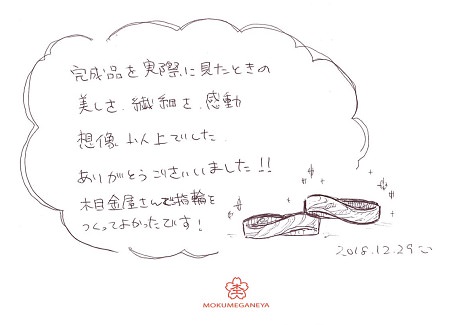 完成品を実際に見たときの
美しさ、繊細さ、感動
想像以上でした
ありがとうございいました!!
木目金屋さんで指輪を
つくってよかったです!
2018.12.29
MOKUMEGANEYA